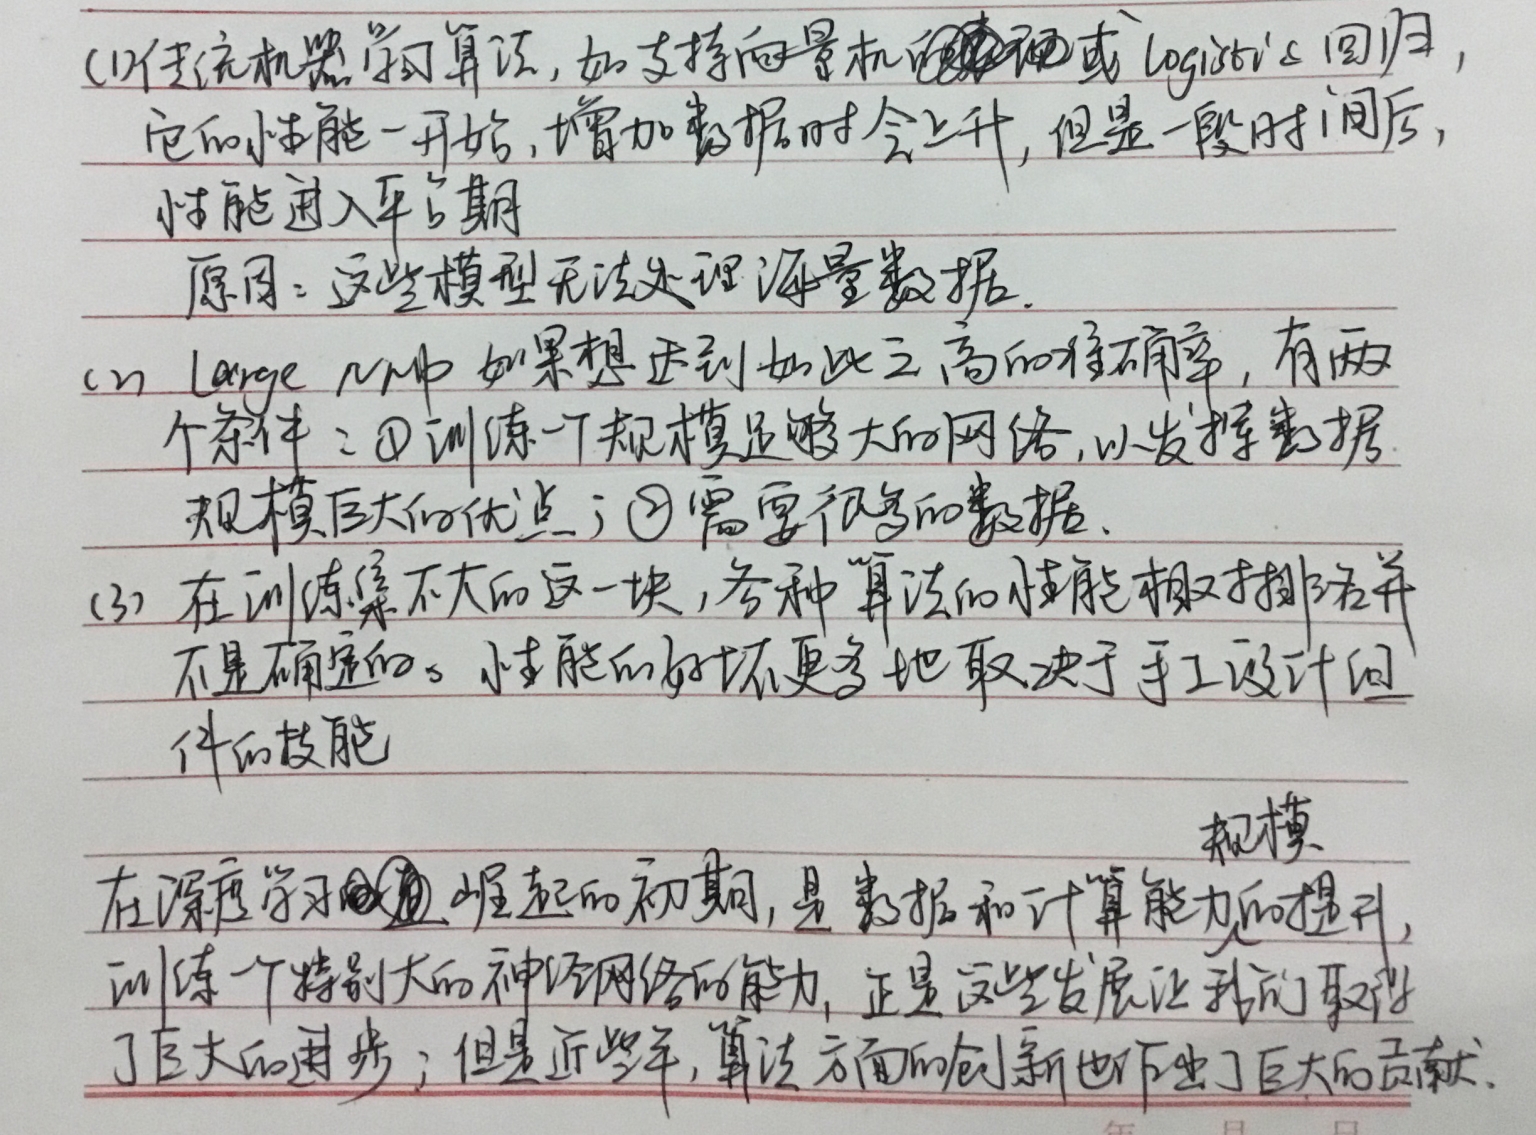 (1)传统机器学习算法,如支持向量机或logistic回归,
它的性能一开始,增加数据时会上升,但是一段时间后,
性能进入平台期
原因:这些模型无法处理海量数据.
(2) Large NN 如果想达到如此之高的准确率,有两
个条件:①训练一个规模足够大的网络,以发挥数据
规模巨大的优点;②需要很多的数据.
(3) 在训练集不大的这一块,各种算法的性能相对排名并
不是确定的。性能的好坏更多地取决于手工设计组
件的技能
规模
在深度学习崛起的初期,是数据和计算能力的提升,
训练一个特别大的神经网络的能力,正是这些发展让我们取得
了巨大的进步;但是近些年,算法方面的创新也作出了巨大的贡献.
年 月 日